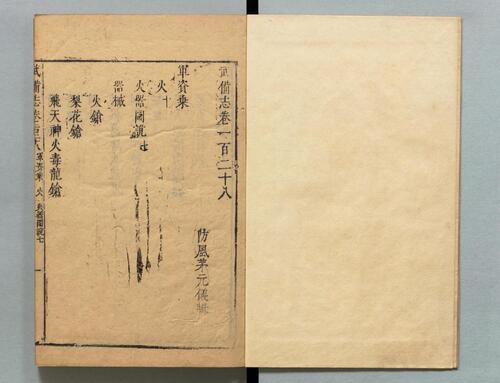 武備志卷一百二十八
防風茅元儀輯
軍資乗
火十
火器圖說七
器械
火鎗
梨花鎗
飛天神火毒龍鎗
武備志卷百二十八 軍資乗 火 火器圖說七 一